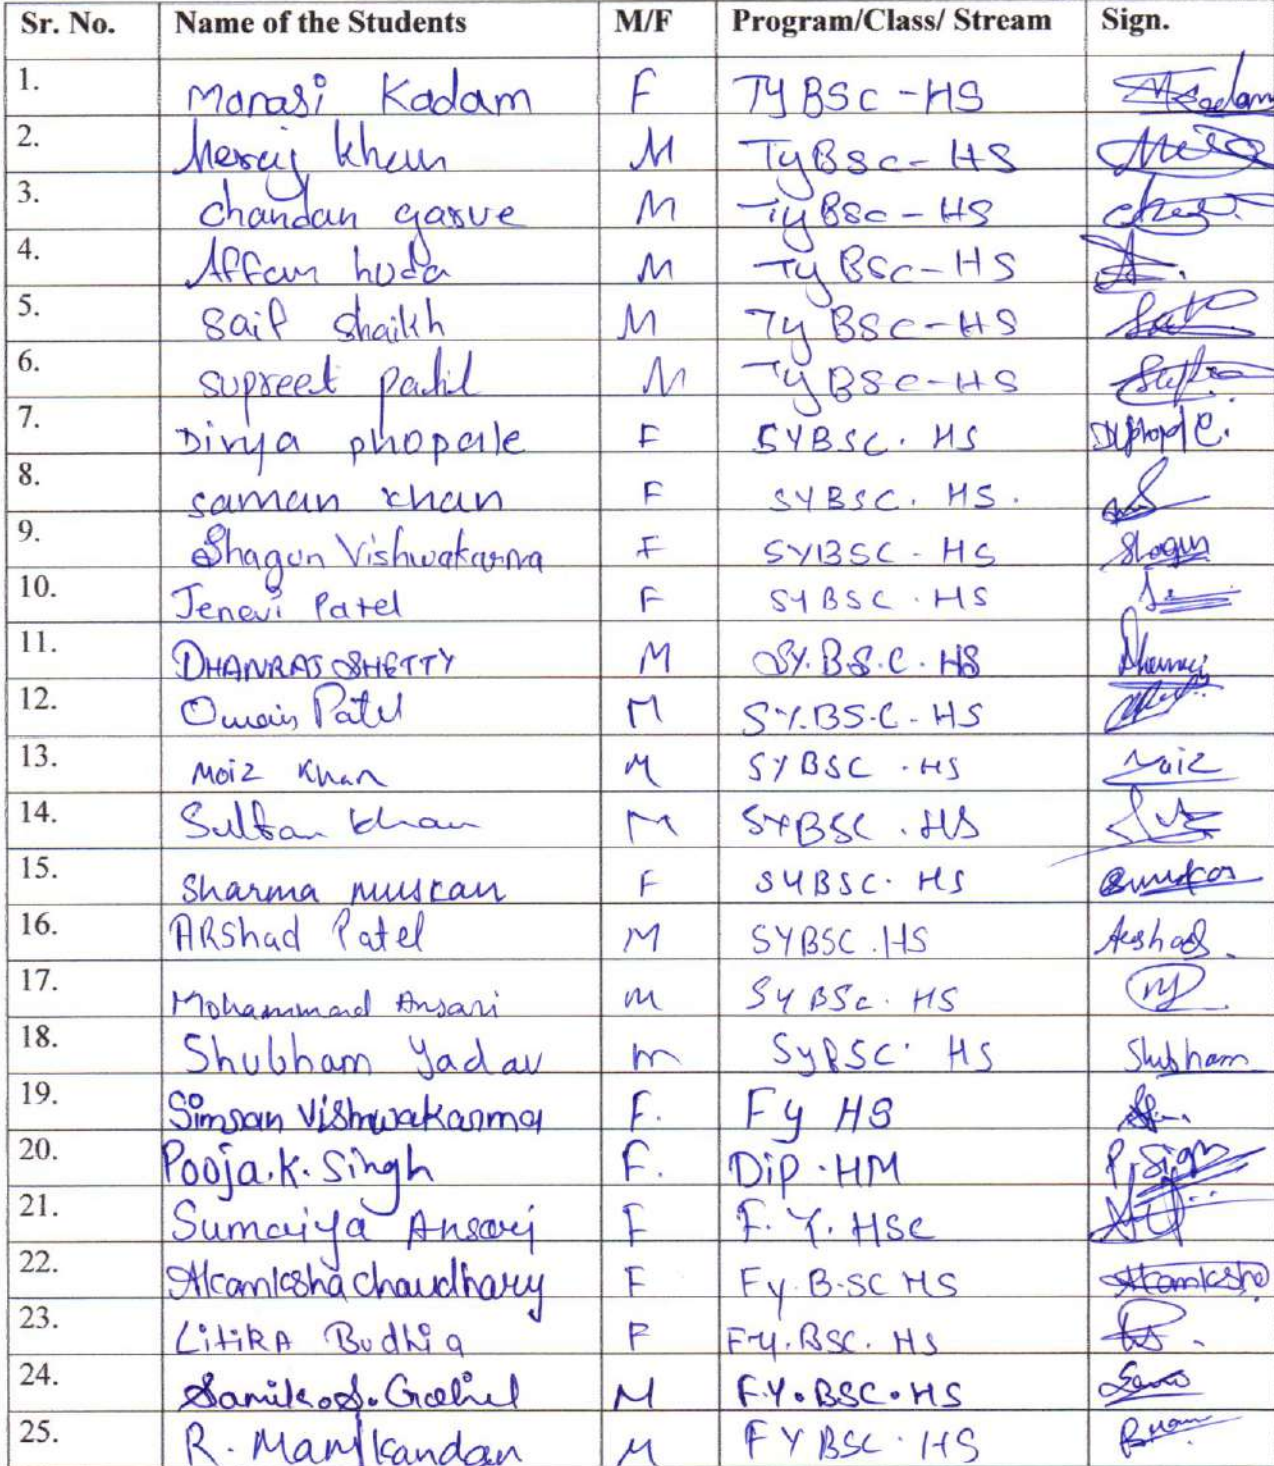 Sr. No. Name of the Students M/F Program/Class/ Stream Sign.
1. Manasi Kadam F TYBSc-HS
2. Meraj khan M TyBSc-HS
3. chandan garve M TyBSc-HS
4. Affan huda M Ty BSc-HS
5. Saif Shaikh M Ty BSc-HS
6. supreet patil M Ty BSc-HS
7. Divya phopale F SYBSC. HS
8. saman khan F SYBSC. HS.
9. Shagun Vishwakarma F SYBSC - HS Shagun
10. Jenevi Patel F SYBSC . HS
11. DHANRAJ SHETTY M SY.B.S.C. HS Dhanraj
12. Owais Patel M S.Y.BS.C - HS
13. Moiz Khan M SYBSC . HS Moiz
14. Sultan khan M SYBSC . HS
15. Sharma muskan F SYBSC. HS
16. ARShad Patel M SYBSC .HS Arshad
17. Mohammad Ansari M SYBSc. HS
18. Shubham Yadav m SyBSC. HS Shubham
19. Simran Vishwakarma F. Fy HS
20. Pooja.K. Singh F. Dip . HM P. Singh
21. Sumaiya Ansari F F. Y. HSC
22. Akanksha chaudhary F Fy. B.SC HS Akanksha
23. LitiRA Budhia F Fy. BSC. HS
24. Samik.S. Gohil M F.Y.BSC.HS
25. R. Manikandan M FYBSC . HS